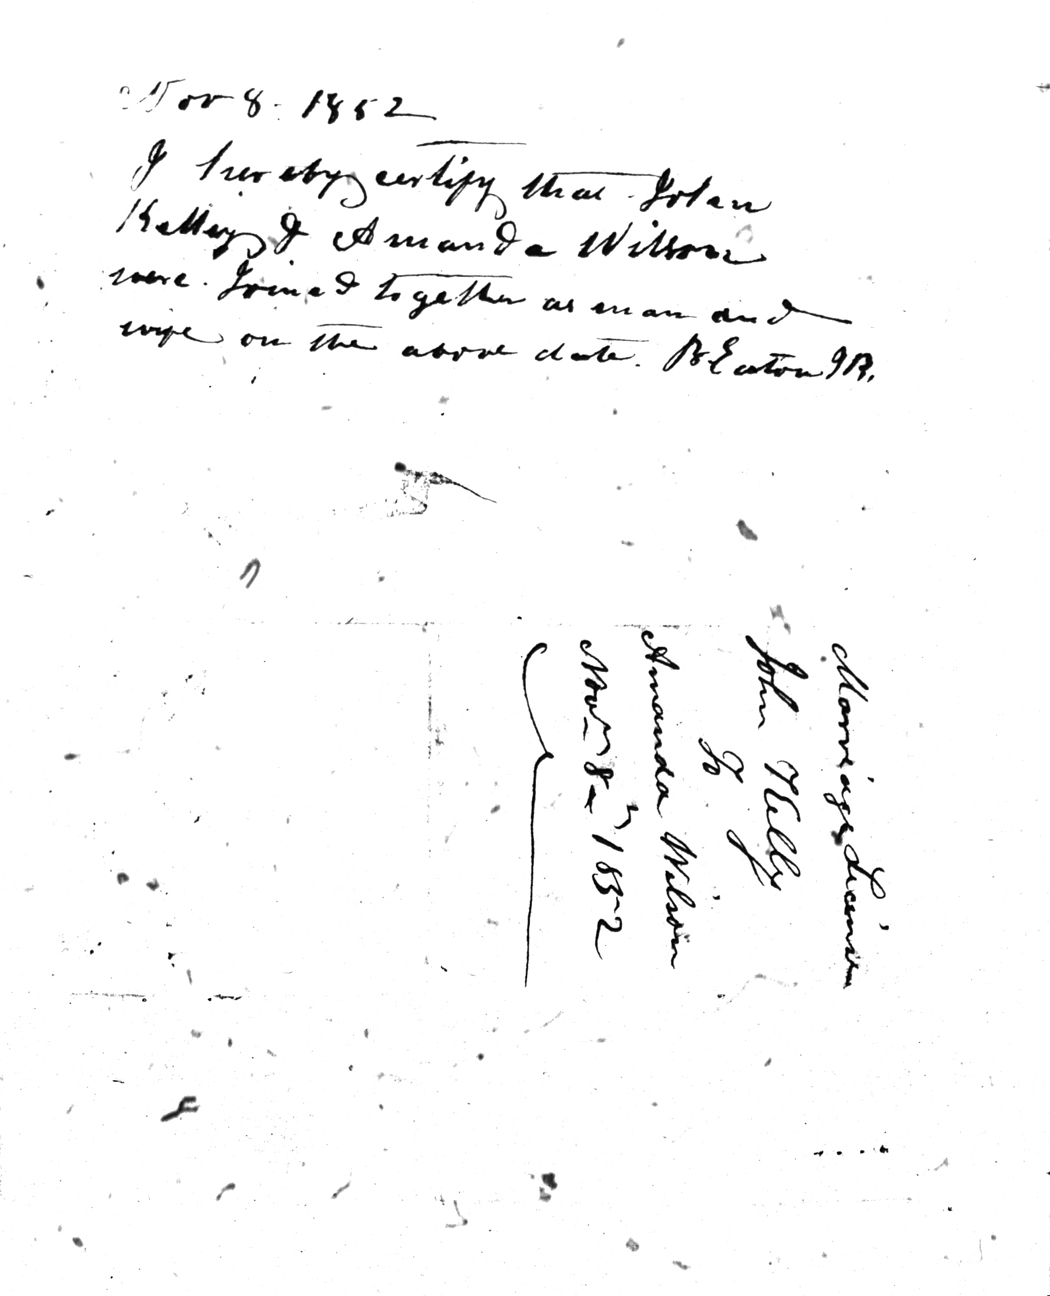 Nov 8. 1852
I hereby certify that John
Kelley & Amanda Wilson
were Joined together as man and
wife on the above date. B Eaton JP.
Marriage License
John Kelly
To
Amanda Wilson
Nov 8th 1852